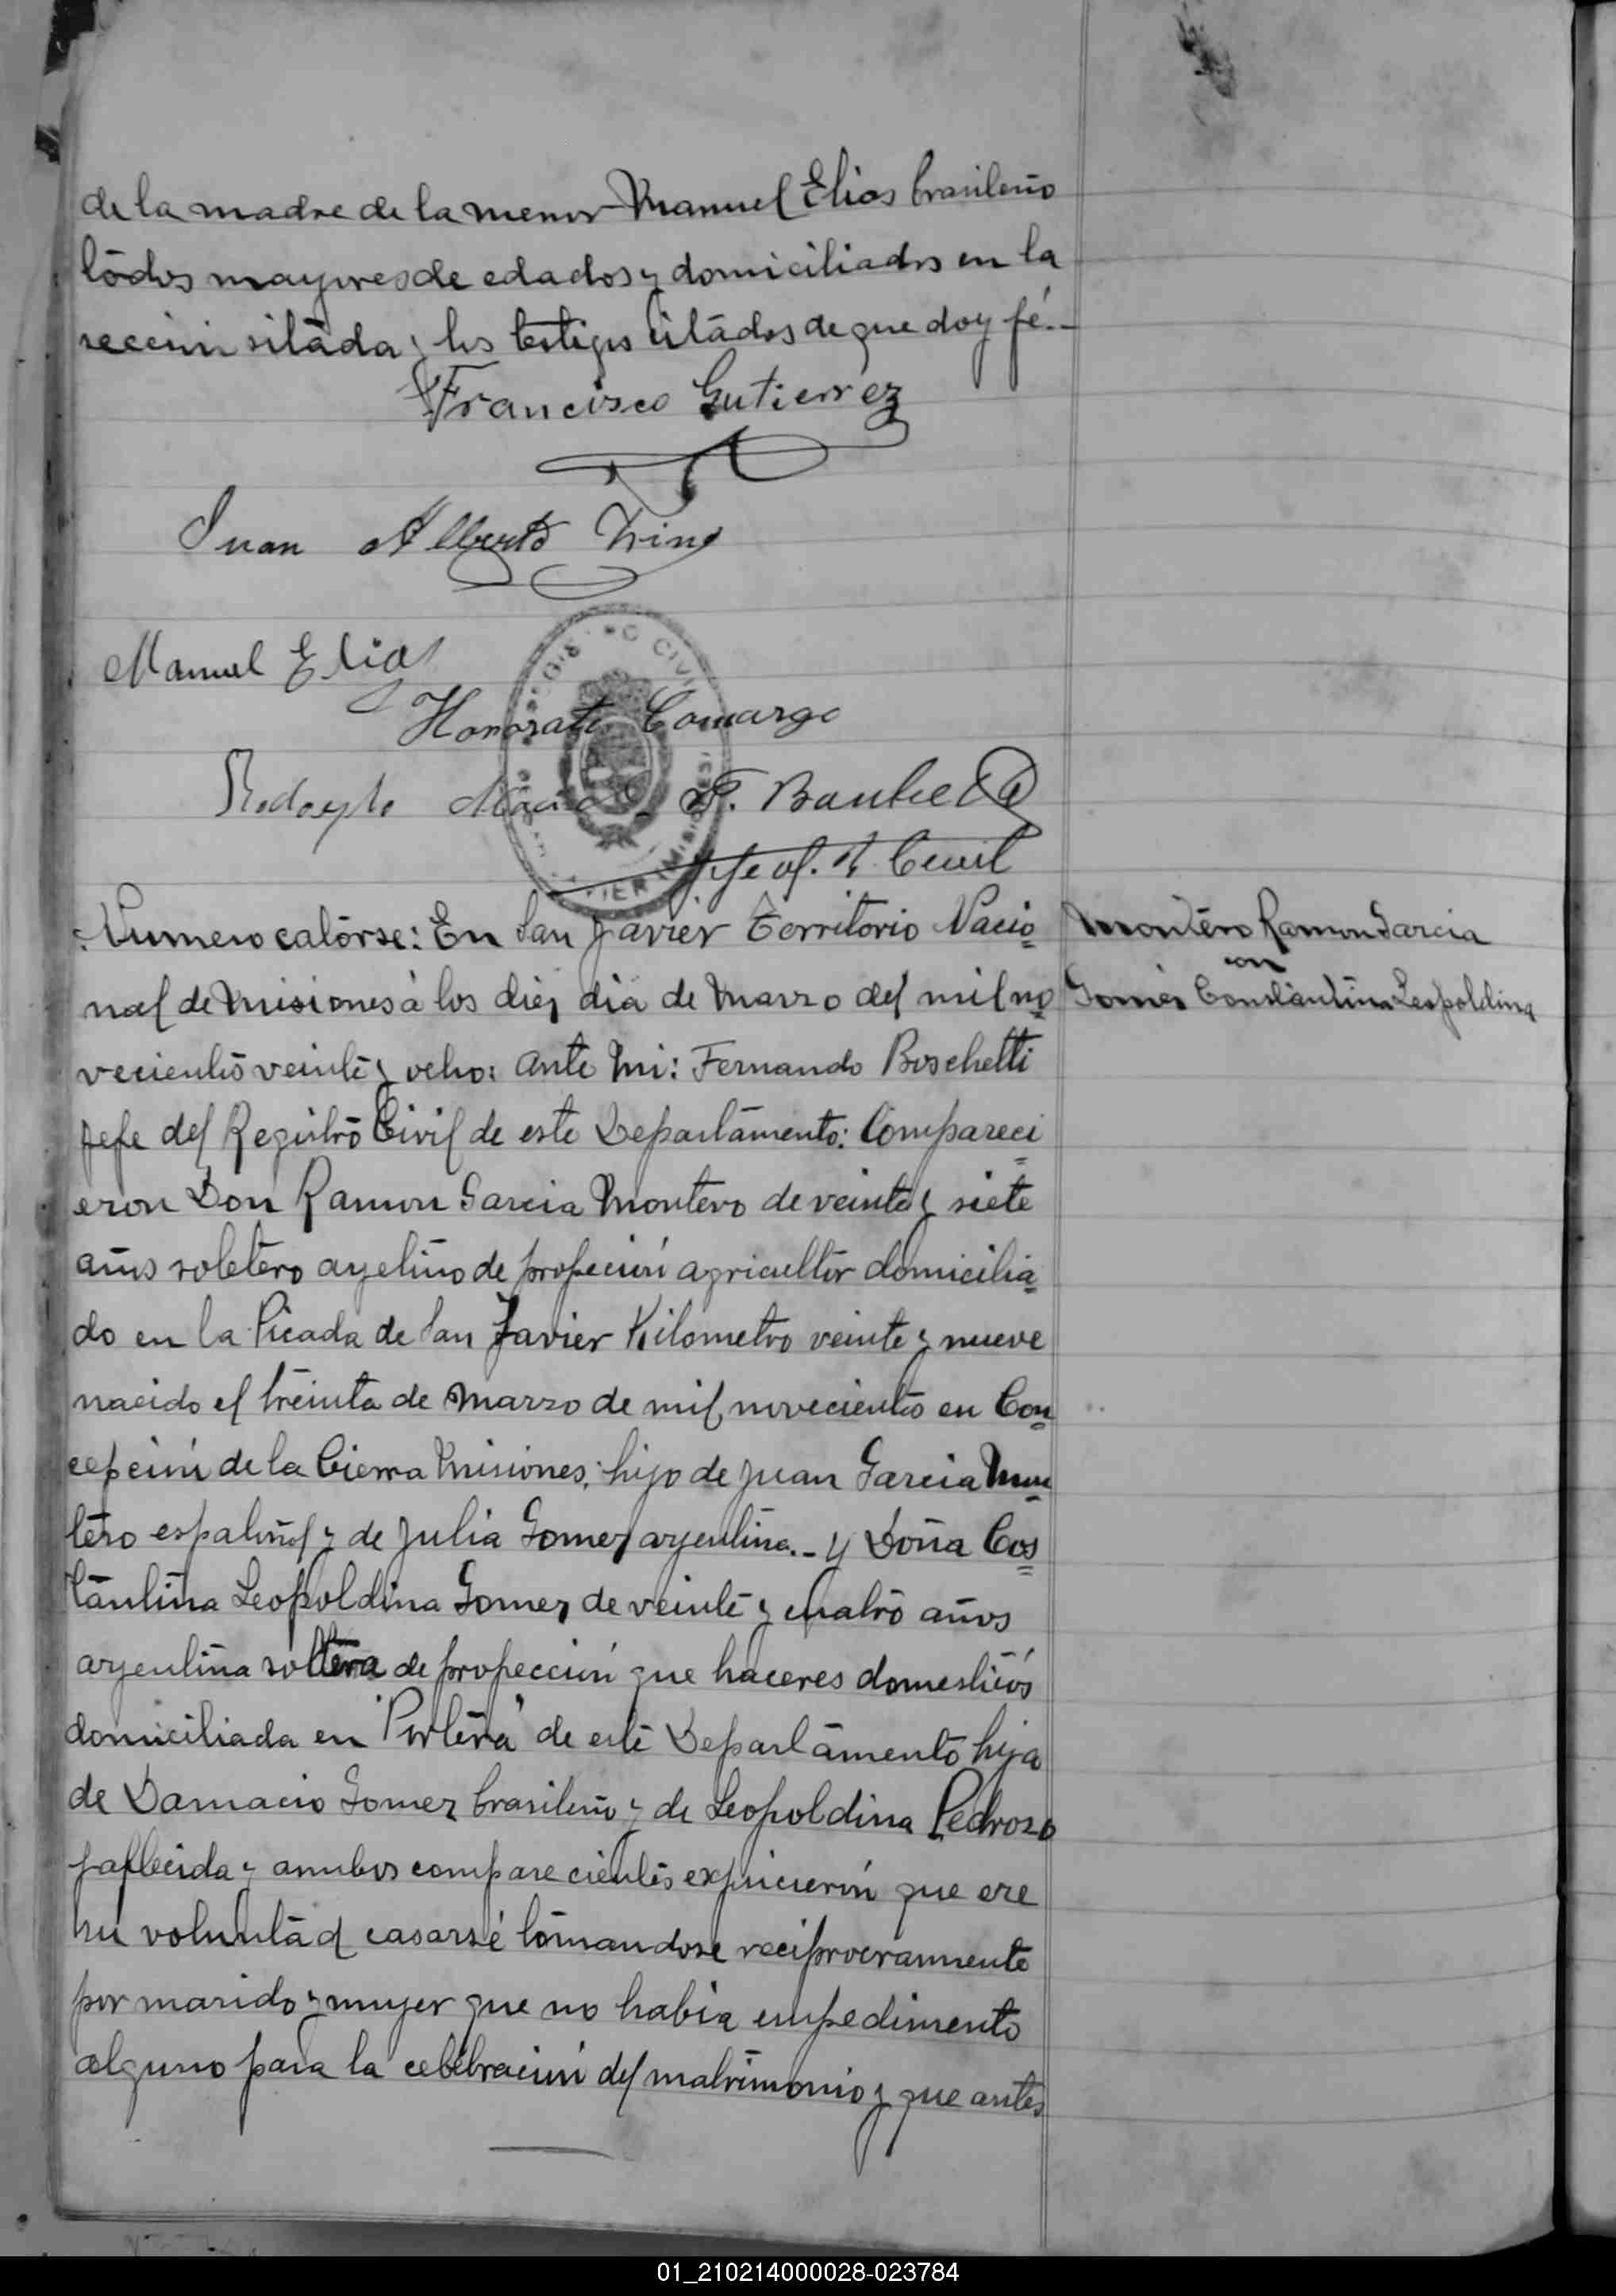 de la madre de la menor Manuel Elias brasileño
todos mayores de edados y domiciliados en la
seccion sitada y los testigos citados de que doy fé.-
Francisco Gutierrez
Juan Alberto
Manuel Elias
Honorato Camargo
Rodolfo
Jefe of. R. Civil
Numero catorse: En San Javier Territorio Nacio
nal de Misiones á los diez dia de Marzo del mil no
vecientos veinte y ocho: Ante Mi: Fernando Boschetti
Jefe del Registro Civil de este Departamento: Compareci
eron Don Ramon Garcia Montero de veinte y siete
años soletero argetino de profecion agricultor domicilia
do en la Picada de San Javier Kilometro veinte y nueve
nacido el treinta de Marzo de mil novecientos en Con
cepcion de la Cierra Misiones; hijo de Juan Garcia Mon
tero español y de Julia Gomez argentina.- y Doña Cos
tantina Leopoldina Gomez de veinte y cuatro años
argentina soltera de profeccion que haceres domesticos
domiciliada en "Portera" de este Departamento hija
de Damacio Gomez brasileño y de Leopoldina Pedrozo
fallecida y ambos comparecientes expucieron que ere
su voluntad casarse tomandose reciprocramente
por marido y mujer que no habia empedimento
alguno para la celebracion del matrimonio y que antes
Montero Ramon Garcia
con
Gomes Constantina Leopoldina
01_210214000028-023784